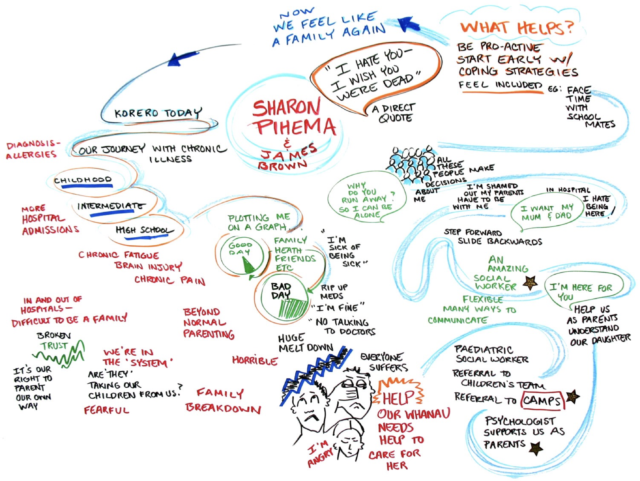 NOW
WE FEEL LIKE
A FAMILY AGAIN
WHAT HELPS?
BE PRO-ACTIVE
START EARLY W/
COPING STRATEGIES
FEEL INCLUDED EG: FACE
TIME
WITH
SCHOOL
MATES
"I HATE YOU—
I WISH YOU
WERE DEAD"
A DIRECT
QUOTE
SHARON
PIHEMA
&
JAMES
BROWN
KORERO TODAY
OUR JOURNEY WITH CHRONIC
ILLNESS
DIAGNOSIS-
ALLERGIES
CHILDHOOD
INTERMEDIATE
HIGH SCHOOL
MORE
HOSPITAL
ADMISSIONS
CHRONIC FATIGUE
BRAIN INJURY
CHRONIC PAIN
IN AND OUT OF
HOSPITALS—
DIFFICULT TO BE A FAMILY
BROKEN
TRUST
IT'S OUR
RIGHT TO
PARENT
OUR OWN
WAY
WE'RE IN
THE 'SYSTEM'
ARE 'THEY'
TAKING OUR
CHILDREN FROM US?
FEARFUL
BEYOND
NORMAL
PARENTING
HORRIBLE
FAMILY
BREAKDOWN
PLOTTING ME
ON A GRAPH
GOOD
DAY
FAMILY
HEATH
FRIENDS
ETC
"I'M
SICK OF
BEING
SICK"
BAD
DAY
RIP UP
MEDS
"I'M FINE"
"NO TALKING
TO DOCTORS
HUGE
MELTDOWN
EVERYONE
SUFFERS
I'M
ANGRY
HELP
OUR WHANAU
NEEDS
HELP TO
CARE FOR
HER
ALL
THESE
PEOPLE MAKE
DECISIONS
ABOUT
ME
WHY
DO YOU
RUN AWAY?
SO I CAN BE
ALONE
I'M SHAMED
OUT MY PARENTS
HAVE TO BE
WITH ME
IN HOSPITAL
I WANT MY
MUM & DAD
I HATE
BEING
HERE!
STEP FORWARD
SLIDE BACKWARDS
AN
AMAZING
SOCIAL
WORKER
FLEXIBLE
MANY WAYS TO
COMMUNICATE
I'M HERE FOR
YOU
HELP US
AS PARENTS
UNDERSTAND
OUR DAUGHTER
PAEDIATRIC
SOCIAL WORKER
REFERRAL TO
CHILDREN'S TEAM
REFERRAL TO CAMPS
PSYCHOLOGIST
SUPPORTS US AS
PARENTS